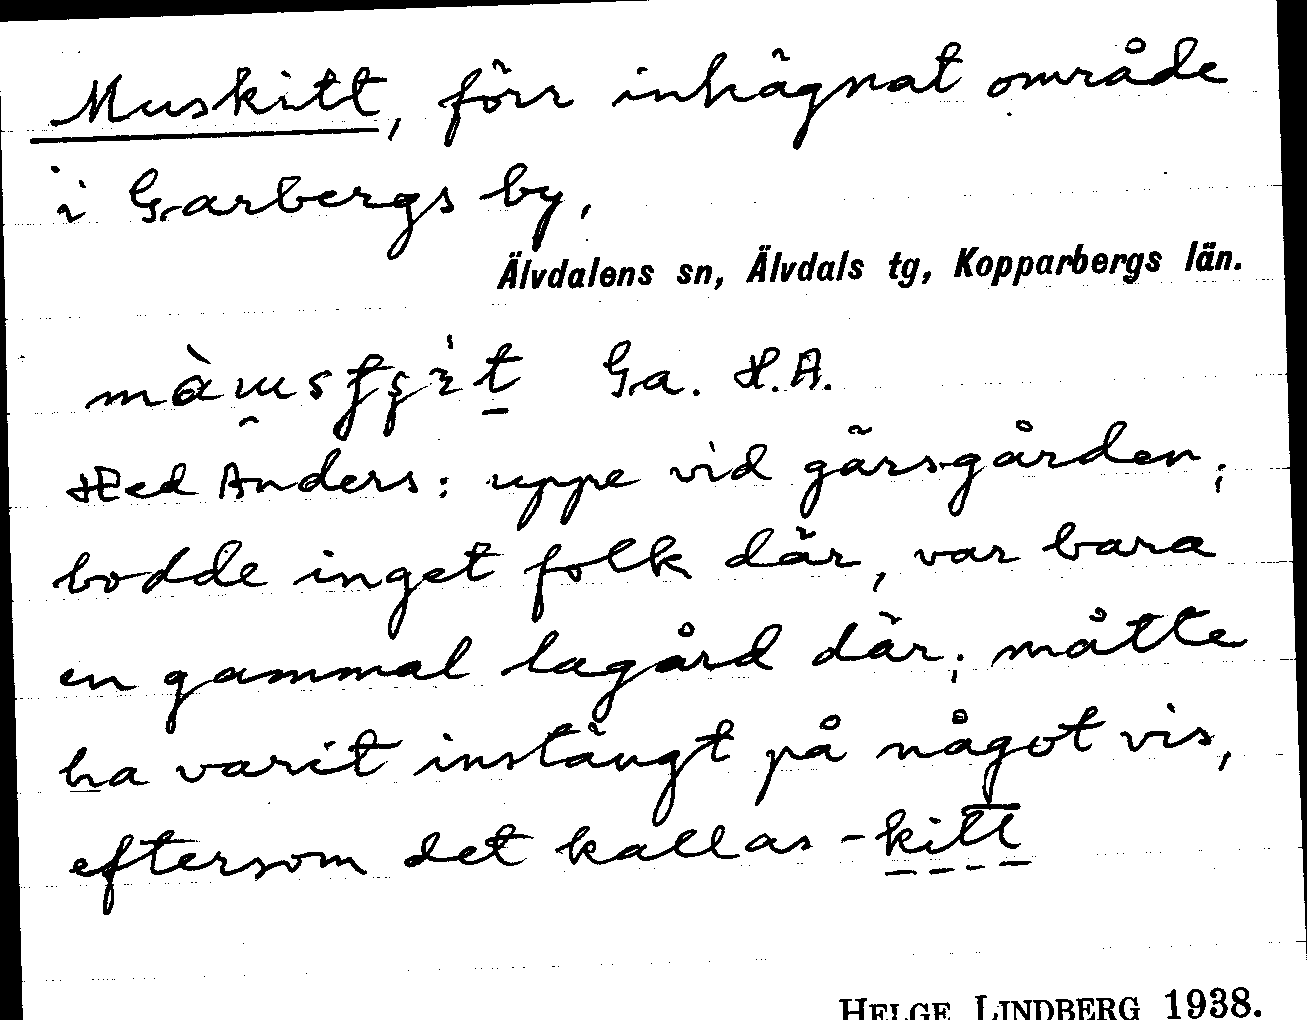 Muskitt, förr inhägnat område
i Garbergs by,
Älvdalens sn, Älvdals tg, Kopparbergs län.
Ga. H.A.
Hed Anders: uppe vid gärsgården;
bodde inget folk där, var bara
en gammal lagård där; måtte
ha varit instängt på något vis,
eftersom det kallas -kitt
HELGE LINDBERG 1938.